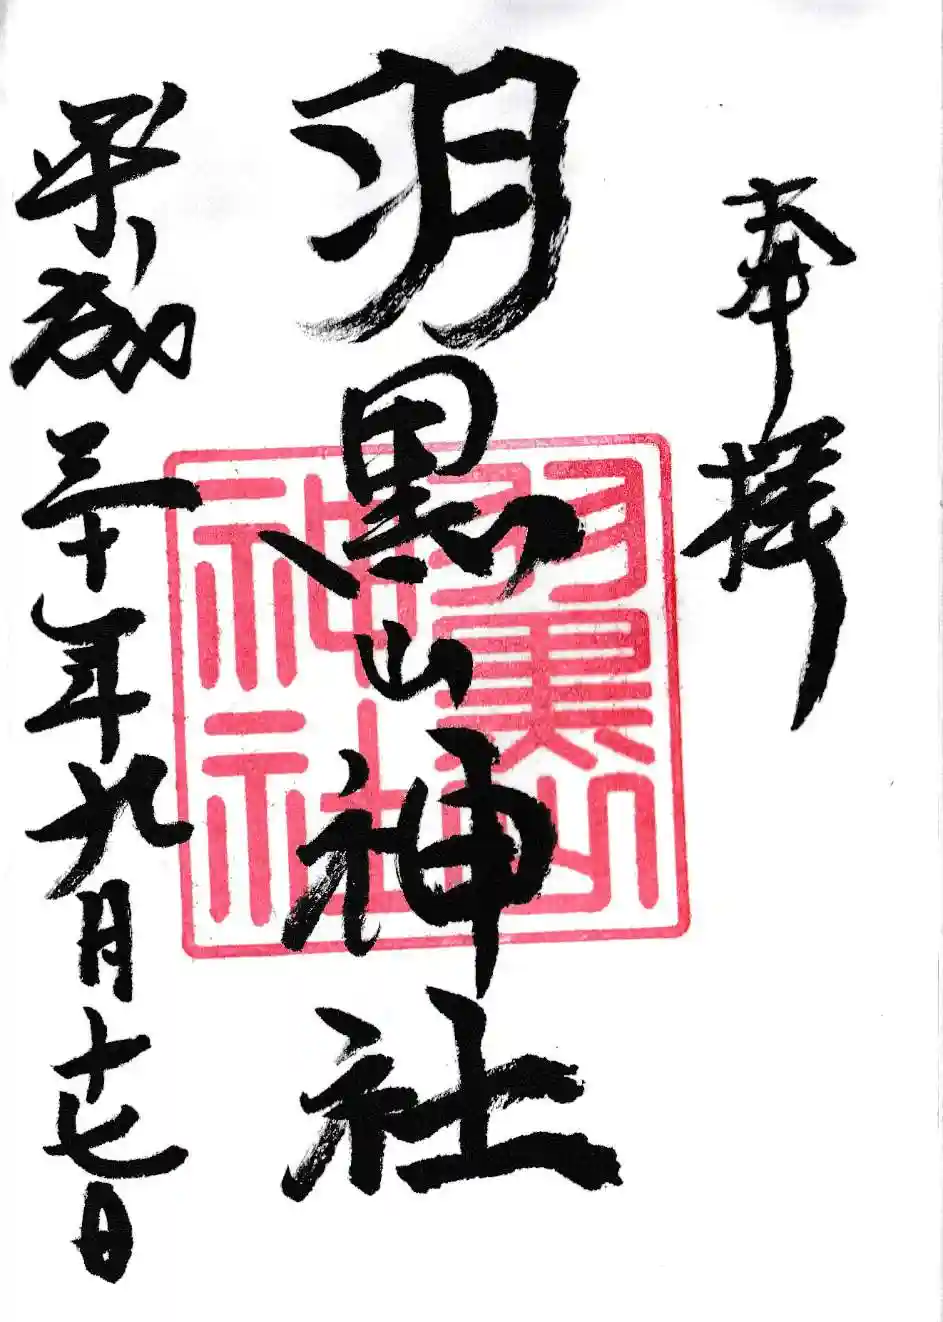 奉拝
羽黒山神社
羽黒山
神社
平成三十年九月十七日